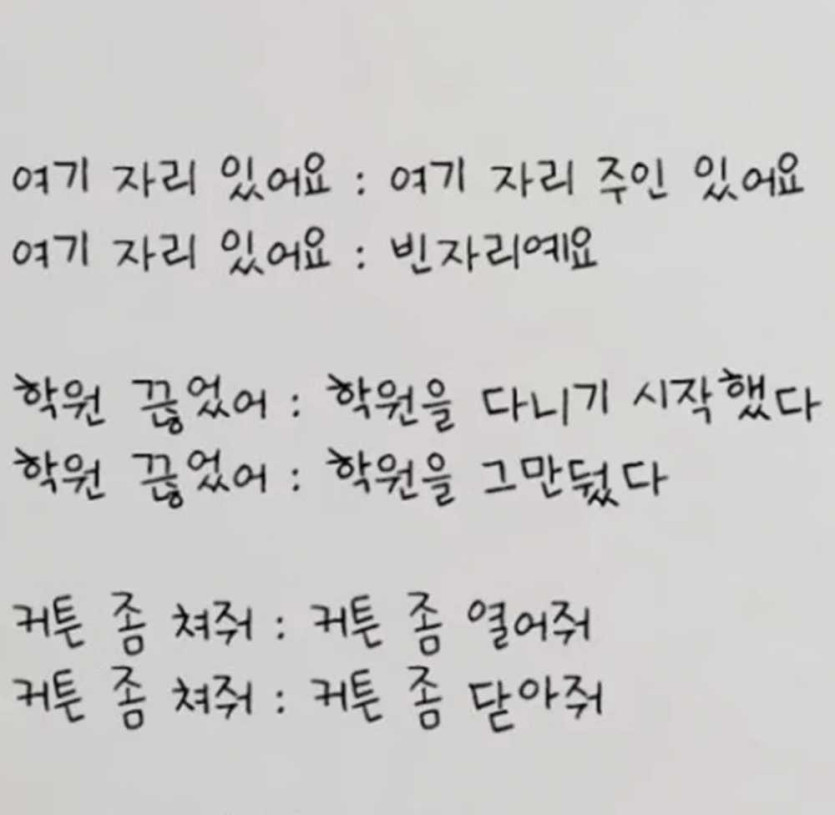 여기 자리 있어요 : 여기 자리 주인 있어요
여기 자리 있어요 : 빈자리예요
학원 끊었어 : 학원을 다니기 시작했다
학원 끊었어 : 학원을 그만뒀다
커튼 좀 쳐줘 : 커튼 좀 열어줘
커튼 좀 쳐줘 : 커튼 좀 닫아줘